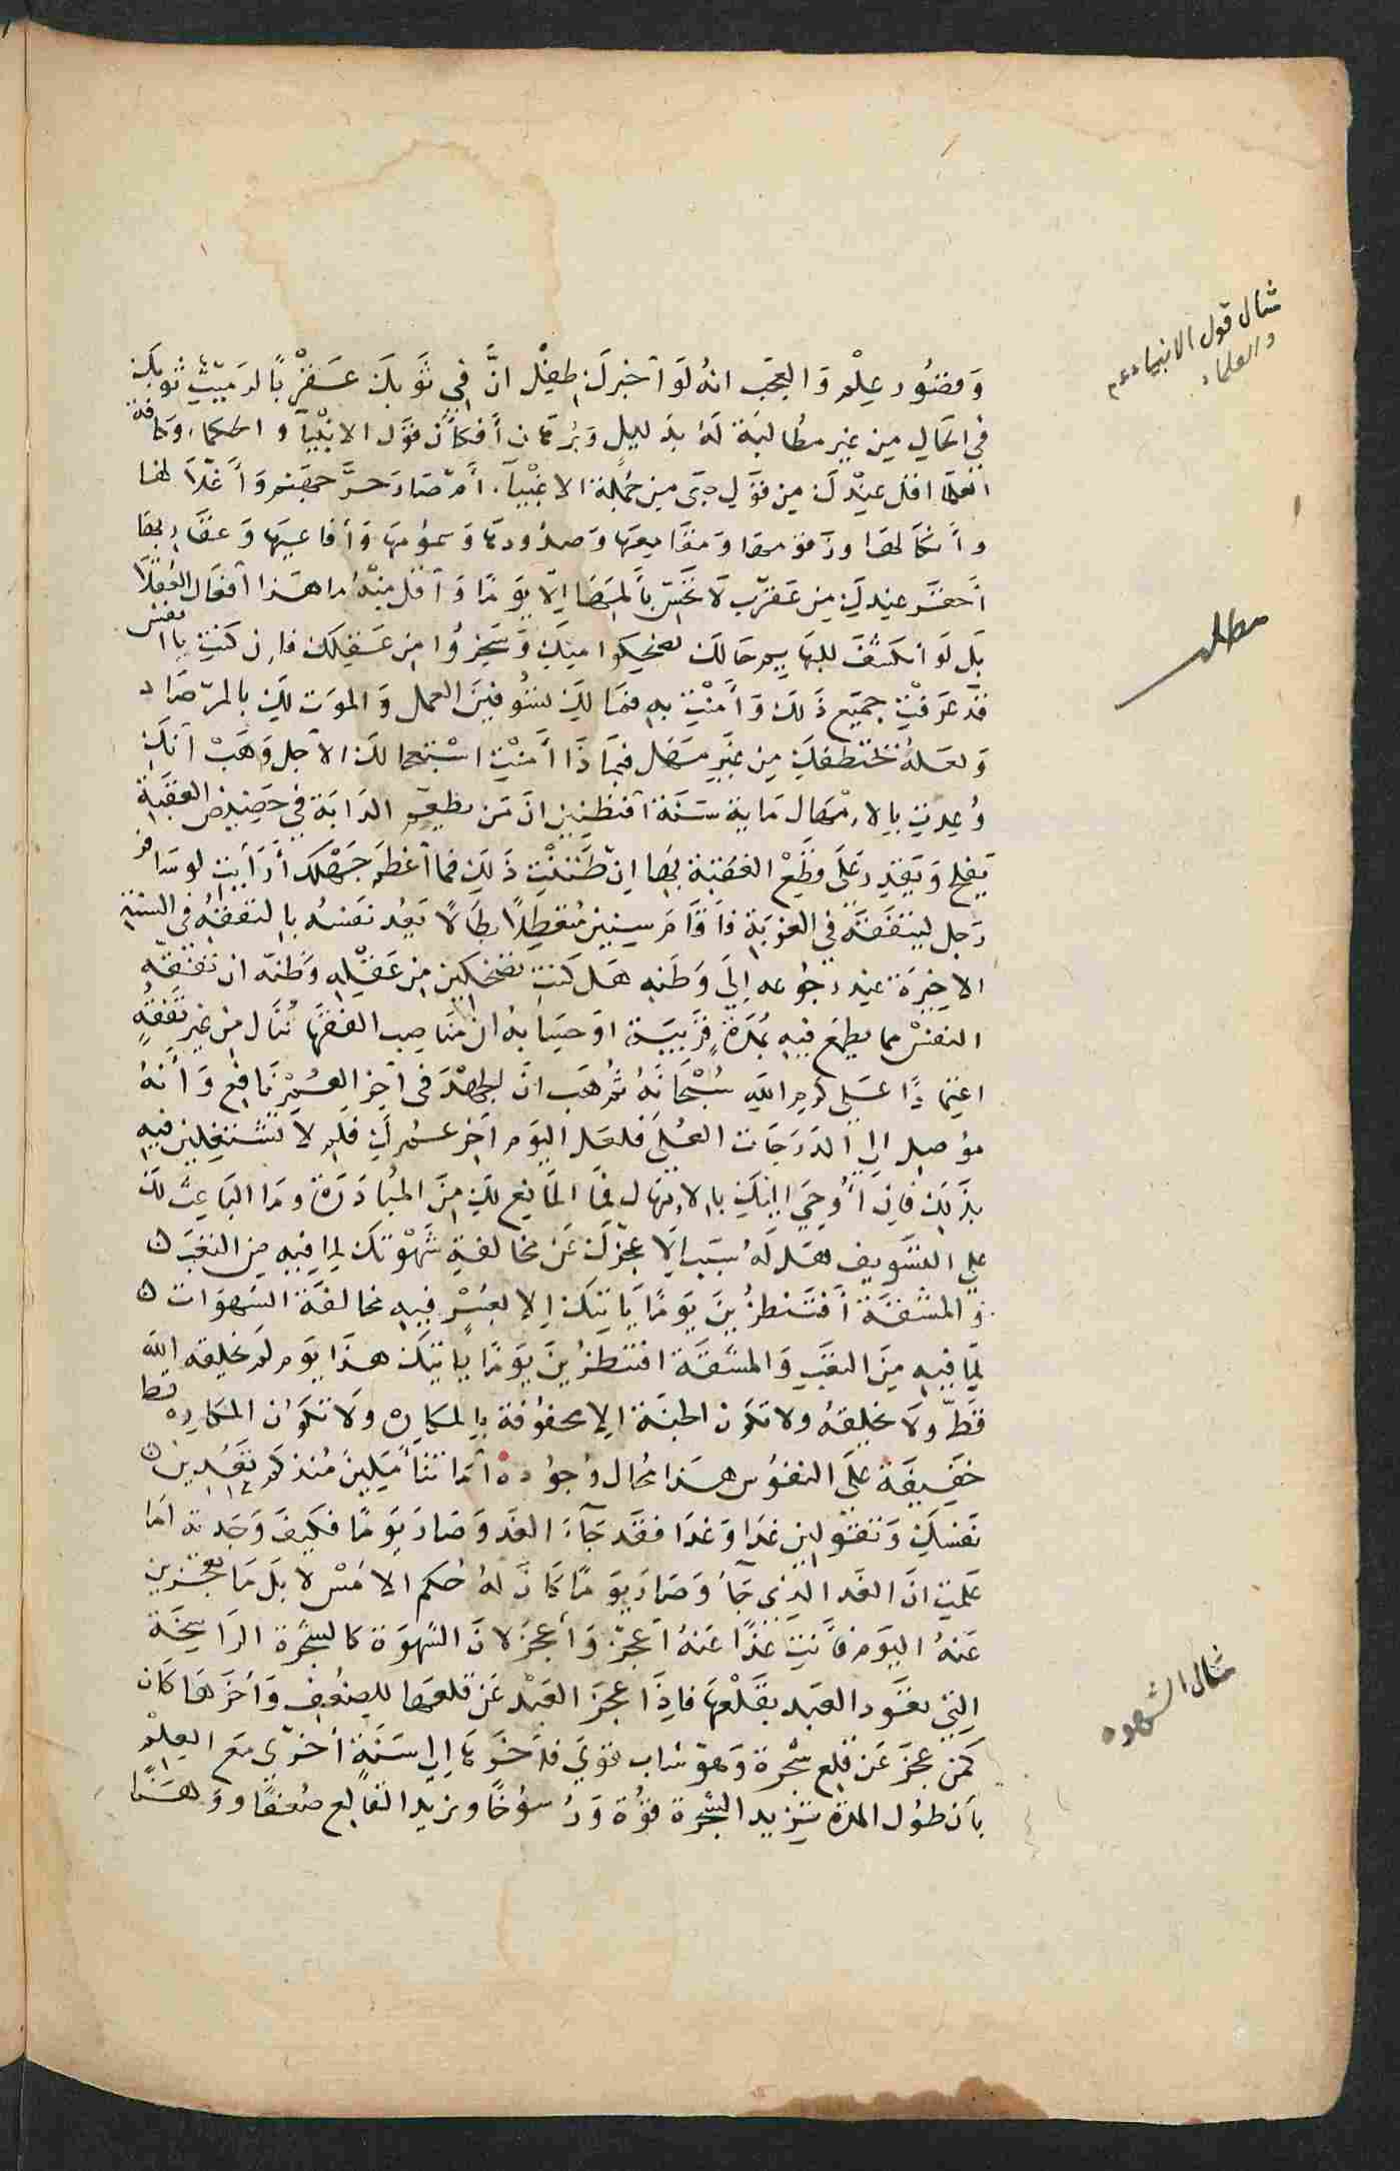 مثال قول الانبياء عم
والعلماء
وقصور علم والعجب انه لو اخبرك طفل ان في ثوبك عقربا لرميت ثوبك
في الحال من غير مطالبة له بدليل وبرهان أفكان قول الانبيآء والحكماء وكافة
العلما اقل عندك من قول صبى من جملة الاغبيآء أم صار حر جهنم وأغلالها
وأنكالها وزقومها ومقامعها وصدودها وسمومها وأفاعيها وعقاربها
أحقر عندك من عقرب لا تحس بألمها الا يوما أو أقل منه ما هذا أفعال العقلا
بل لو انكشف للبهايم حالك لضحكوا منك وسخروا من عقلك فان كنت يا نفس
قد عرفت جميع ذلك وأمنت به فما لك تسوفين العمل والموت لك بالمرصاد
ولعله يختطفك من غير مهل فبماذا أمنت استعجالك الاجل وهب أنك
وعدت بالامهال ماية سنة أفتظنين ان من يطعم الدابة في حضيض العقبة
يفلح ويقدر على قطع العقبة بها ان ظننت ذلك فما أعظم جهلك أرأيت لو سافر
رجل ليتفقه في الغربة فأقام سنين متعطلا بطالا يعد نفسه بالتفقه فى السنة
الاخيرة عند رجوعه إلى وطنه هل كنت تضحكين من عقله وظنه ان تفقه
النفس مما يطمع فيه بمدة قريبة او حسابه ان مناصب الفقها تنال من غير تفقه
اعتمادا على كرم الله سبحانه ثم هب ان الجهد فى آخر العمر نافع وأنه
موصل الى الدرجات العلى فلعل اليوم اخر عمرك فلم لا تشتغلين فيه
بذلك فان أوحي اليك بالامهال فما المانع لك من المبادرة وما الباعث لك
على التسويف هل له سبب الا عجزك عن مخالفة شهوتك لما فيه من التعب
والمشقة أفتنتظرين يوما يأتيك لا يعسر فيه مخالفة الشهوات
لما فيه من التعب والمشقة افتنتظرين يوما يأتيك هذا يوم لم يخلقه الله
قط ولا يخلقه ولا تكون الجنة الا محفوفة بالمكاره ولا تكون المكاره قط
خفيفة على النفوس هذا محال وجوده أما تتأملين منذ كم تعدين
نفسك وتقولين غدا وغدا فقد جآء الغد وصار يوما فكيف وجدته اما
علمت ان الغد الذى جآء وصار يوما كان له حكم الامس لا بل ما تعجزين
عنه اليوم فأنت غدا عنه أعجز وأعجز لان الشهوة كالشجرة الراسخة
التي تعود العبد بقلعها فاذا عجز العبد عن قلعها للضعف وأخرها كان
كمن عجز عن قلع شجرة وهو شاب قوي فأخرها الى سنة أخرى مع العلم
بأن طول المدة تزيد الشجرة قوة ورسوخا ويزيد القالع ضعفا ووهنا
مطلب
مثال الشهوه